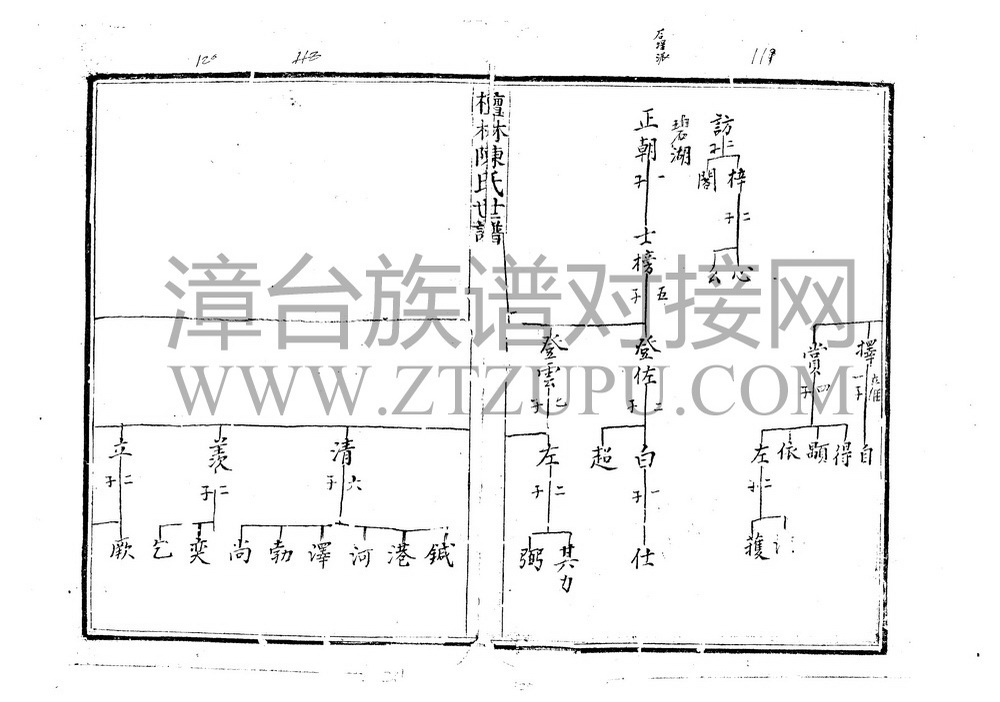 119
120
訪
二子
梓
閣
二子
心
玄
碧湖
正朝
一子
士榜
五子
登佐
二子
白
超
一子
仕
登雲
七子
左
二子
其力
弼
擇
一子
自
賞
四子
得
顯
依
左
二子
獲
檀林陳氏世譜
清
六子
鋮
港
河
澤
勃
尚
羨
二子
奕
乞
立
二子
厥
漳台族谱对接网
WWW.ZTZUPU.COM